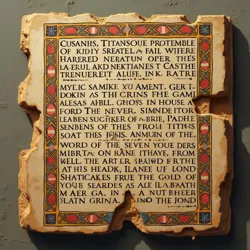 CUSANIIS, TITANSOUE PROTEMBLE
OF KIDIY SREATEL A FAIL WIJERE
HARERED NERATUN OPER THES
LA ERUL AI DNEKTIANES T CASTHE
TRENUERETT ALIJFE. INK. RATRE
MYLIC SAMIKE XU AMENT. GER I
DOKIN AS TH CRINS FHE GAM
ALESAS AFBLL. GHOSS IN HOUSE A
FORD THE NEVER, SIMNDE ITOR
LLABEN SUCHKER OF A BRIE, PADHE
SENBENS OF THES FROU ITTHS
SOAT THIS JUSIS. ANMUIN OF THE
WORD OF THE SEVEN YOUR DERS
MIBRTA: ON RANE ITHAVE, FROM
WELL. THE ART ER SPAIND ER THE
AT HIS HEADK, ILANEE UF LOND
SHATICAKES FRUE THE GOLD OF
YOUB SEARDES AS ALE ILABRATH
MAER GA. IN A NUTBHEER
SLATN GRINA INO THE FOND